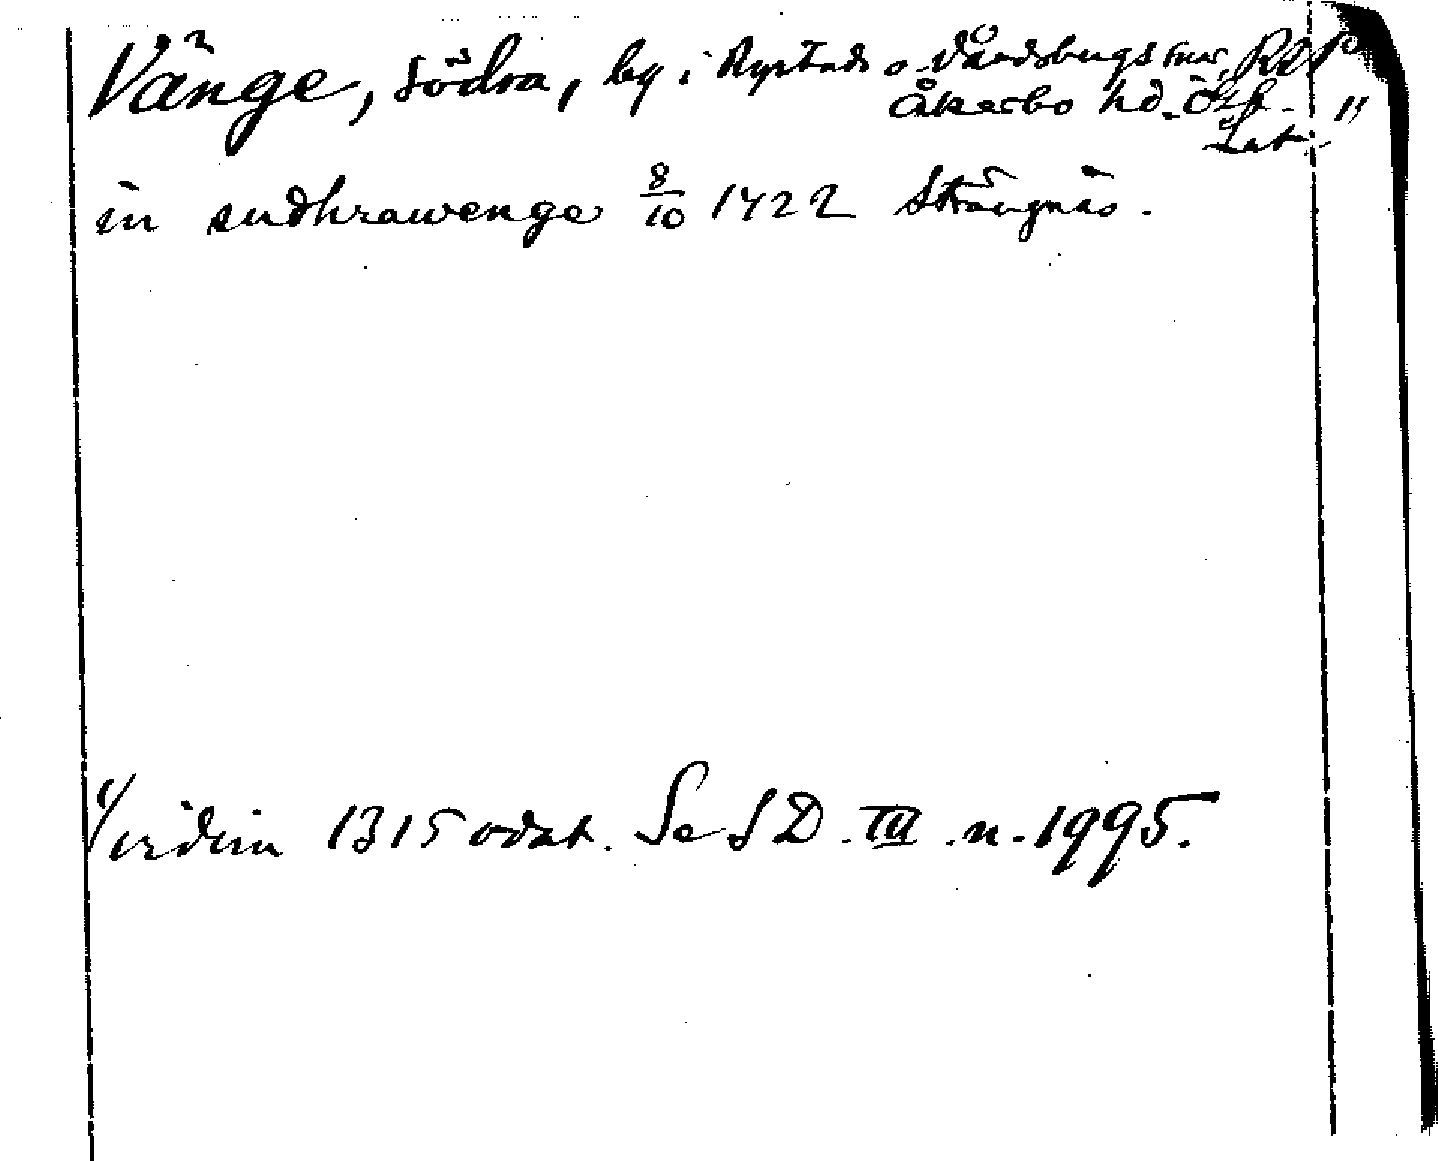 Vänge, Södra, by i Rystads o. Vårdsbergs snr, RAp
Åkerbo hd. Ötg. "
Lat.
in sudhrawenge 8/10 1422 Strängnäs.
1/ 1315 odat. Se SD. III. n. 1995.